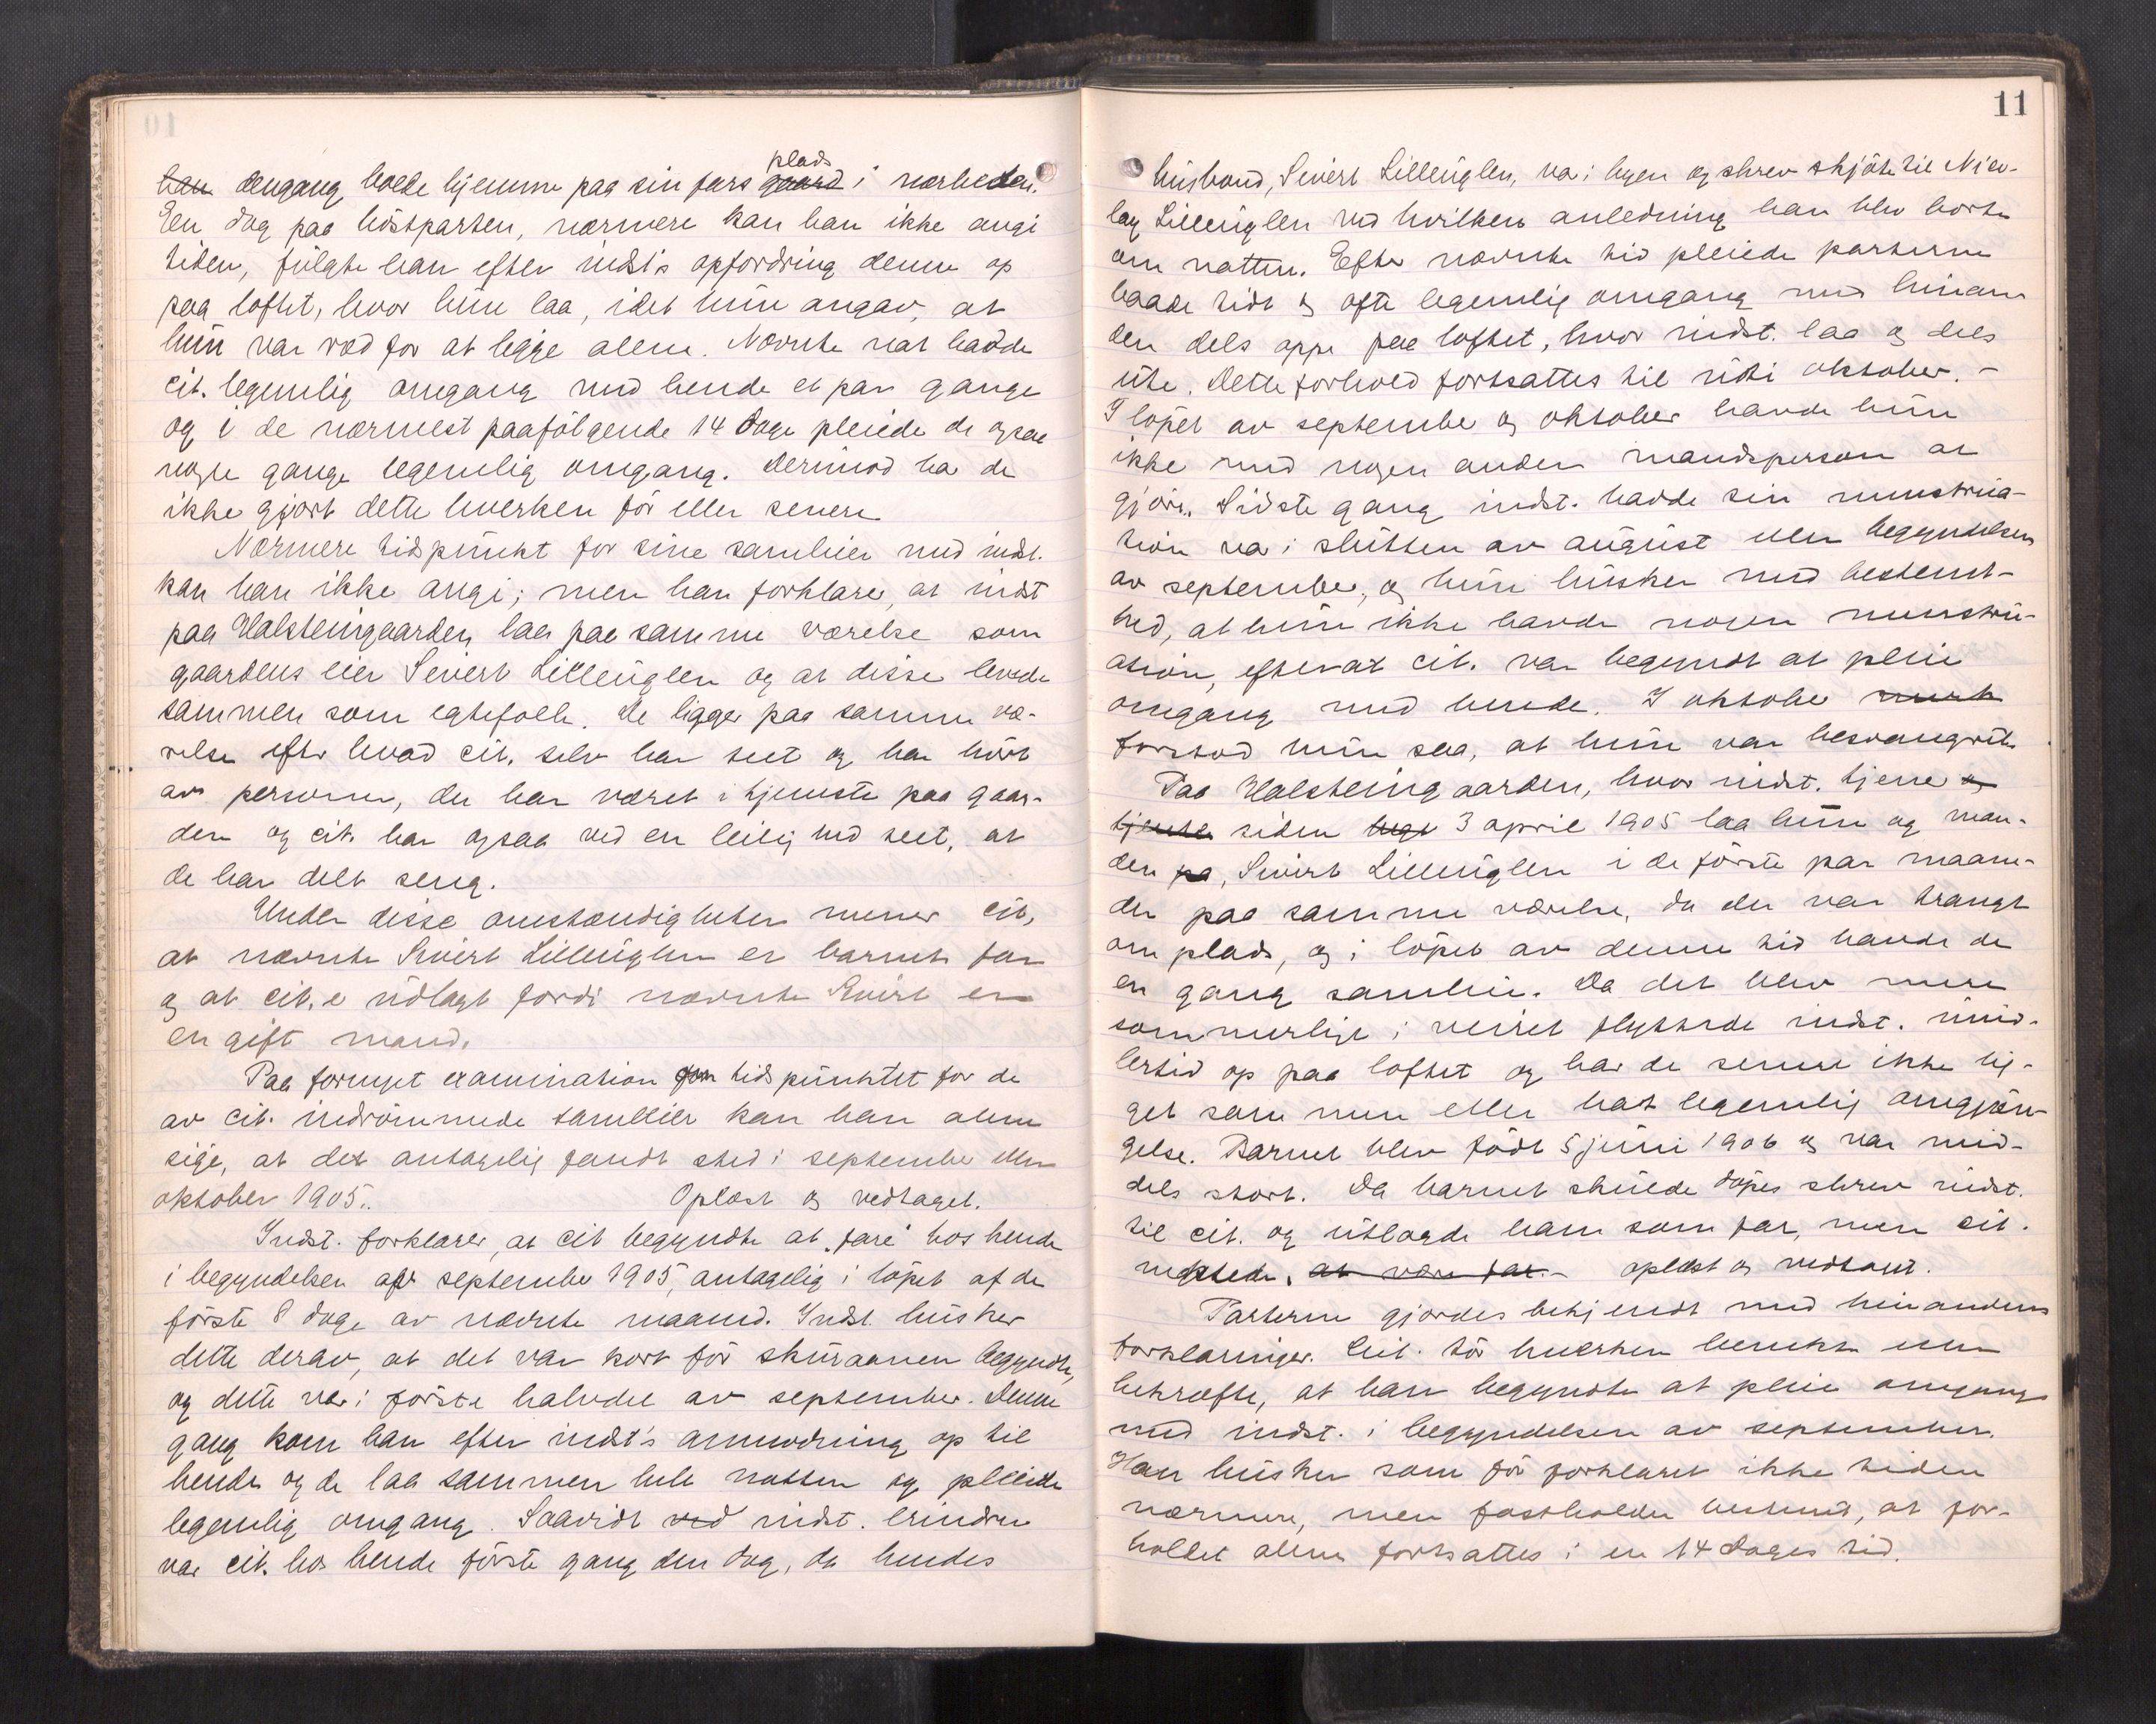 plads
han dengang boede hjemme paa sin fars gaard i nærheden.
Een dag paa höstparten, nærmere kan han ikke angi
tiden, fulgte han efter indst's opfordring denne op
paa loftet, hvor hun laa, idet hun angav, at
hun var ræd for at ligge alene. Nævnte nat hadde
cit. legemlig omgang med hende et par gange
og i de nærmest paafölgende 14 dage pleiede de ogsaa
nogle gange legemlig omgang. Derimod har de
ikke gjort dette hverken för eller senere.
Nærmere tidspunkt for sine samleier med indst.
kan han ikke angi; men han forklarer, at indst
paa Halsteingaarden laa paa samme værelse som
gaardens eier Severt Lilleuglen og at disse levede
sammen som egtefolk. De ligger paa samme væ-
relse efter hvad cit. selv har seet og har hört
av personer, der har været i tjeneste paa gaar-
den og cit. har ogsaa ved en leilighed seet, at
de har delt seng.
Under disse omstændigheter mener cit,
at nævnte Severt Lilleuglen er barnets far
og at cit. er udlagt fordi nævnte Severt er
en gift mand.
Paa fornyet examination om tidspunktet for de
av cit. indrömmede samleier kan han alene
sige, at det antagelig fandt sted i september eller
oktober 1905. Oplæst og vedtaget.
Indst. forklarer, at cit begyndte at "fare" hos hende
i begyndelsen af september 1905, antagelig i löpet af de
förste 8 dage av nævnte maaned. Indst. husker
dette derav, at det var kort för skuraanen begyndte,
og dette var i förste halvdel av september. Denne
gang kom han efter indst's anmodning op til
hende og de laa sammen hele natten og pleiede
legemlig omgang. Saavidt ved indst. erindrer
var cit. hos hende förste gang den dag, da hendes
11
husbond, Severt Lilleuglen, var i byen og skrev skjöte til Nico-
lay Lilleuglen ved hvilken anledning han blev borte
om natten. Efter nævnte tid pleiede parterne
baade tidt og ofte legemlig omgang med hinan-
den dels oppe paa loftet, hvor indst. laa og dels
ute. Dette forhold fortsattes til uti oktober. -
I löpet av september og oktober havde hun
ikke med nogen anden mandsperson at
gjöre. Sidste gang indst. hadde sin menstrua-
tion var i slutten av august eller begyndelsen
av september, og hun husker med bestemt-
hed, at hun ikke havde nogen menstru-
ation, efterat cit. var begyndt at pleie
omgang med hende. I oktober
forstod hun saa, at hun var besvangret.
Paa Halsteingaarden, hvor indst. tjener og
tjente siden 3 april 1905 laa hun og man-
den pa, Severt Lilleuglen i de förste par maane-
der paa samme værelse, da der var trangt
om plads, og i löpet av denne tid havde de
en gang samleie. Da det blev mere
sommerligt i veiret flyttede indst. imid-
lertid op paa loftet og har de senere ikke lig-
get sammen eller hat legemlig omgjæn-
gelse. Barnet blev födt 5 juni 1906 og var mid-
dels stort. Da barnet skulde döpes skrev indst.
til cit. og utlagde ham som far, men cit.
negtede, at være far. - oplæst og vedtaget.
Parterne gjordes bekjendt med hinandens
forklaringer. Cit. tör hverken benekte eller
bekræfte, at han begyndte at pleie omgang
med indst. i begyndelsen av september.
Han husker som för forklaret ikke tiden
nærmere, men fastholder bestemt, at for-
holdet alene fortsattes i en 14 dages tid.